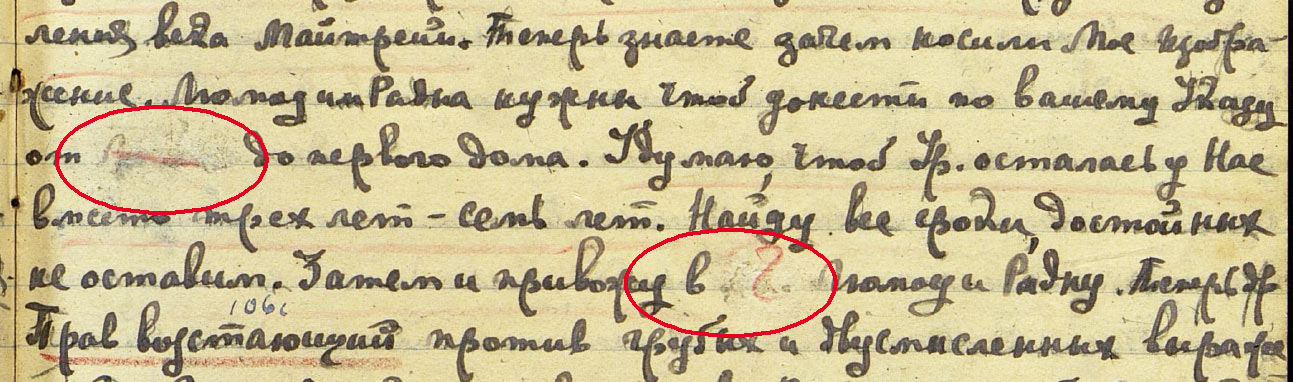 ления века Майтрейи. Теперь знаете зачем носили Мое изобра-
жение. Люмоу и Радна нужны чтоб донести по вашему Указу
от до первого дома. Я думаю, чтоб Ур. осталась у Нас
вместо трех лет – семь лет. Найду все сроки, достойных
не оставим. Затем и привожу в ? Люмоу и Радну. Теперь др
106с
Прав возстающий против грубых и двусмысленных выраже